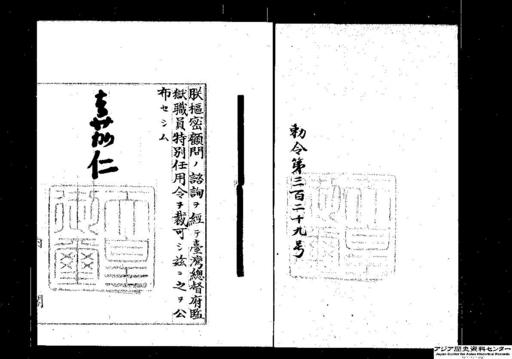 勅令第三百二十九号
朕樞密顧問ノ諮詢ヲ經テ臺灣總督府監
獄職員特別任用令ヲ裁可シ茲ニ之ヲ公
布セシム
嘉仁
天皇
御璽
内閣
アジア歴史資料センター
Japan Center for Asian Historical Records